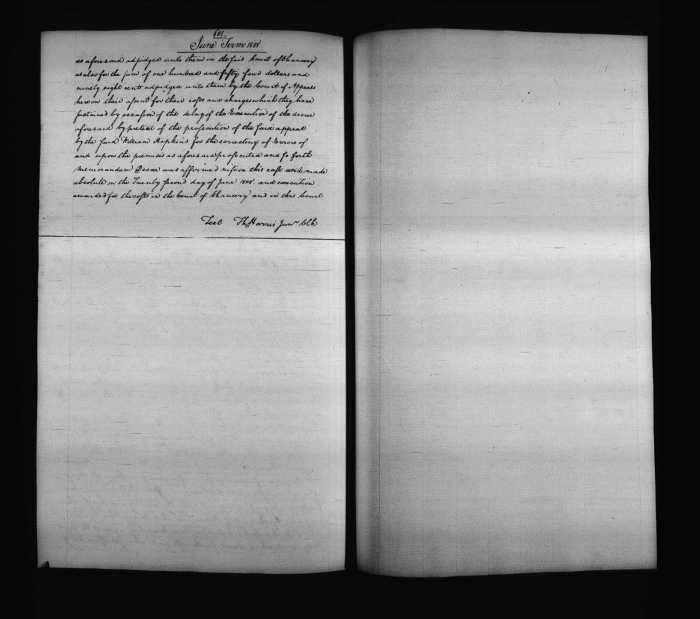 601
June Term 1808
as aforesaid adjudged unto them in the said Court of Chancery
as also for the sum of one hundred and fifty four dollars and
ninety eight cents adjudged unto them by the Court of Appeals
here on their assent for their costs and charges which they have
sustained by occasion of the delay of the Execution of the decree
aforesaid by pretext of the prosecution of the said appeal
by the said William Hopkins for the correcting of Errors of
and upon the premises as aforesaid prosecuted and so forth
Memorandum Decree was affirmed nisi in this case and made
absolute on the Twenty second day of June 1808 and execution
awarded for the costs in the Court of Chancery and in this Court
Test Th Harris Junr Clk